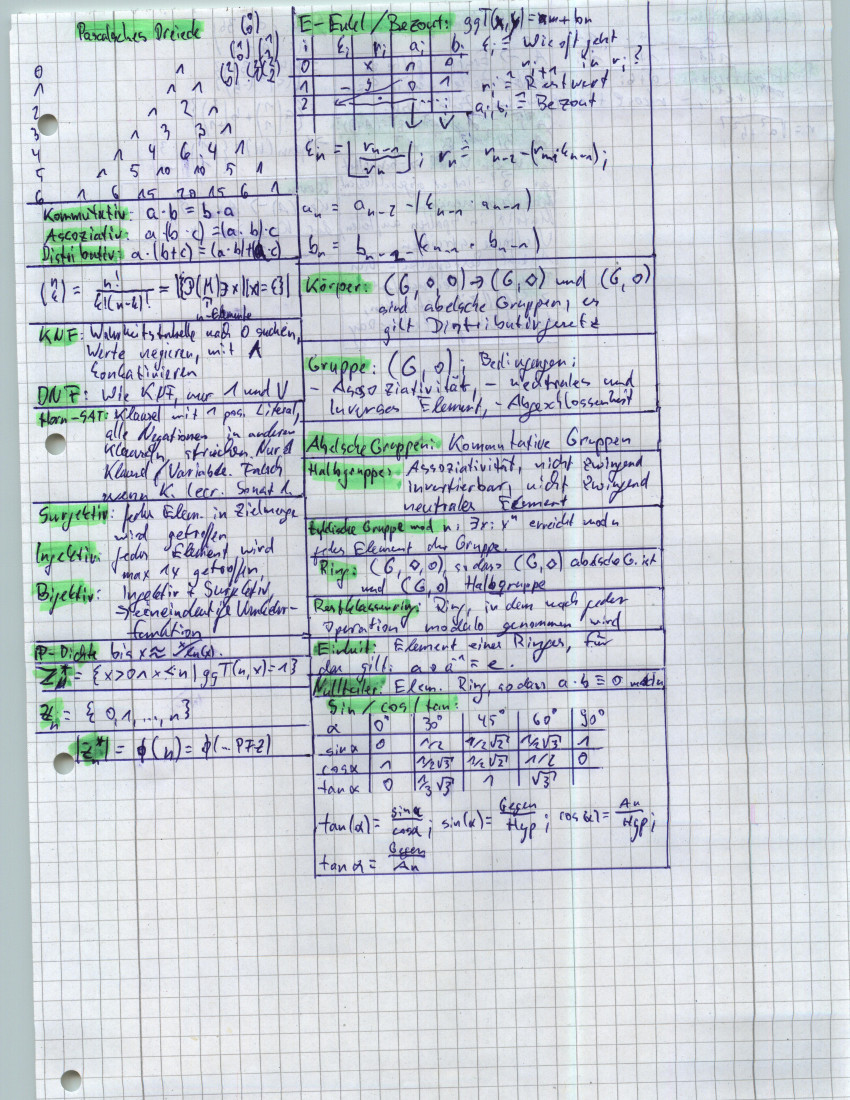 Pascalsches Dreieck
(0 0)
(1 0) (1 1)
(2 0) (2 1) (2 2)
0 1
1 1 1
2 1 2 1
3 1 3 3 1
4 1 4 6 4 1
5 1 5 10 10 5 1
6 1 6 15 20 15 6 1
Kommutativ: a·b = b·a
Assoziativ: a·(b·c) = (a·b)·c
Distributiv: a·(b+c) = (a·b)+(a·c)
(n k) = n! / k!(n-k)! = |{P(M)∋x | |x|=k}|
n-Elemente
KNF: Wahrheitstabelle nach 0 suchen,
Werte negieren, mit ∧
konkatinieren
DNF: Wie KNF, nur 1 und V
Horn-SAT: Klausel mit 1 pos. Literal,
alle Negationen in anderen
Klauseln streichen. Nur 1
Klausel/Variable. Falsch
wenn K. leer. Sonst 1.
Surjektiv: jedes Elem. in Zielmenge
wird getroffen
Injektiv: jedes Element wird
max 1x getroffen
Bijektiv: Injektiv + Surjektiv,
→ eineindeutige Umkehr-
funktion
P-Dichte bis x ≈ x/ln(x).
Z*n = {x>0 ∧ x≤n | ggT(n,x)=1}
Zn = {0,1,...,n}
|Z*n| = ϕ(n) = ϕ(-PFZ)
E-Eukl/Bezout: ggT(x,y) = am + bn
i ki ri ai bi
0 x 1 0
1 - y 0 1
2
ki ≙ Wie oft geht
ri+1 in ri?
ri ≙ Restwert
ai, bi ≙ Bezout
kn = ⌊rn-1 / rn⌋; rn = rn-2 - (rn-1·kn-1);
an = an-2 - (kn-1 · an-1)
bn = bn-2 - (kn-1 · bn-1)
Körper: (G, ◇, o) → (G, ◇) und (G, o)
sind abelsche Gruppen, es
gilt Distributivgesetz
Gruppe: (G, o); Bedingungen:
- Assoziativität, - neutrales und
Inverses Element, - Abgeschlossenheit
Abelsche Gruppen: Kommutative Gruppen
Halbgruppe: Assoziativität, nicht zwingend
invertierbar, nicht zwingend
neutrales Element
Zyklische Gruppe mod n: ∃x: xⁿ erreicht mod n
jedes Element der Gruppe.
Ring: (G, ◇, o), sodass (G, ◇) abelsche G. ist
und (G, o) Halbgruppe
Restklassenring: Ring, in dem nach jeder
Operation modulo genommen wird
Einheit: Element eines Ringes, für
das gilt: a o a⁻¹ = e.
Nullteiler: Elem. Ring, sodass a·b ≡ 0 mod n
Sin/cos/tan:
α 0° 30° 45° 60° 90°
sinα 0 1/2 1/2√2 1/2√3 1
cosα 1 1/2√3 1/2√2 1/2 0
tanα 0 1/3√3 1 √3
tan(α) = sinα/cosα; sin(α) = Gegen/Hyp; cos(α) = An/Hyp;
tanα = Gegen/An